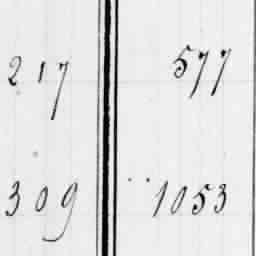 217 577
309 " 1053